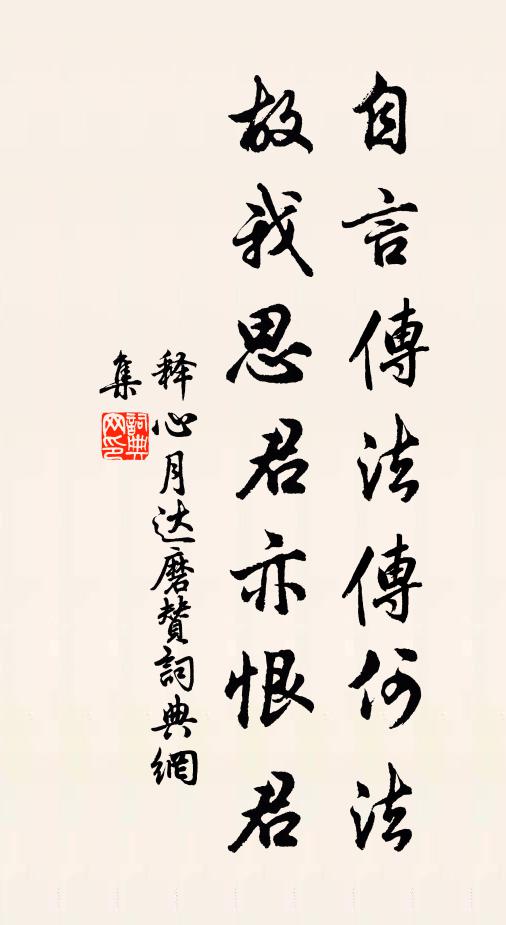 自言傳法傳何法
故我思君亦恨君
释心月达磨赞詞典網
集
詞典
网印